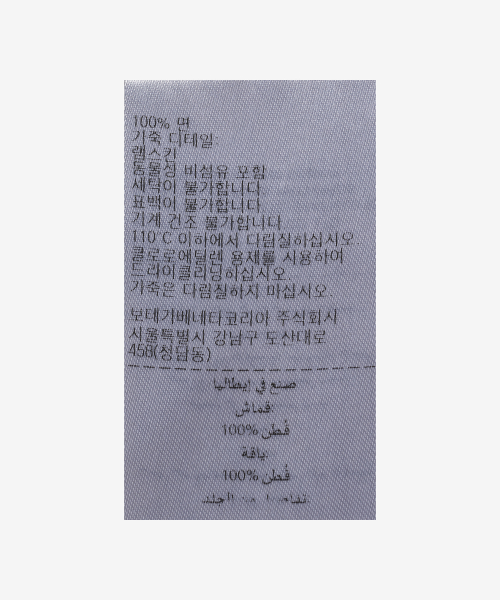 100% 면
가죽 디테일:
램스킨
동물성 비섬유 포함
세탁이 불가합니다
표백이 불가합니다
기계 건조 불가합니다
110°C 이하에서 다림질하십시오.
클로로에틸렌 용제를 사용하여
드라이클리닝하십시오.
가죽은 다림질하지 마십시오.
보테가베네타코리아 주식회사
서울특별시 강남구 도산대로
458(청담동)
صنع في إيطاليا
قماش:
قُطن 100%
ياقة:
قُطن 100%
تفاصيل من الجلد: